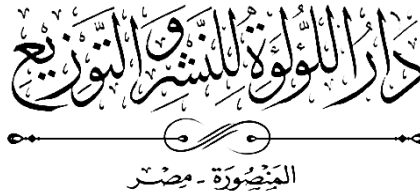 دَارُ اللُّؤْلُؤَةِ لِلنَّشْرِ وَالتَّوْزِيعِ
المَنْصُورَة - مِصْر